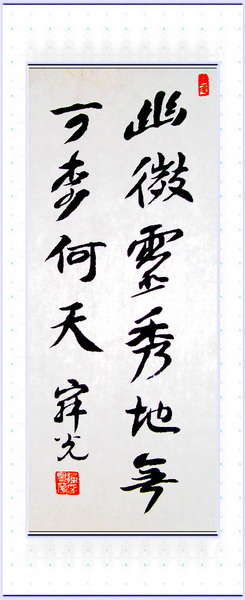 幽微靈秀地無
可奈何天